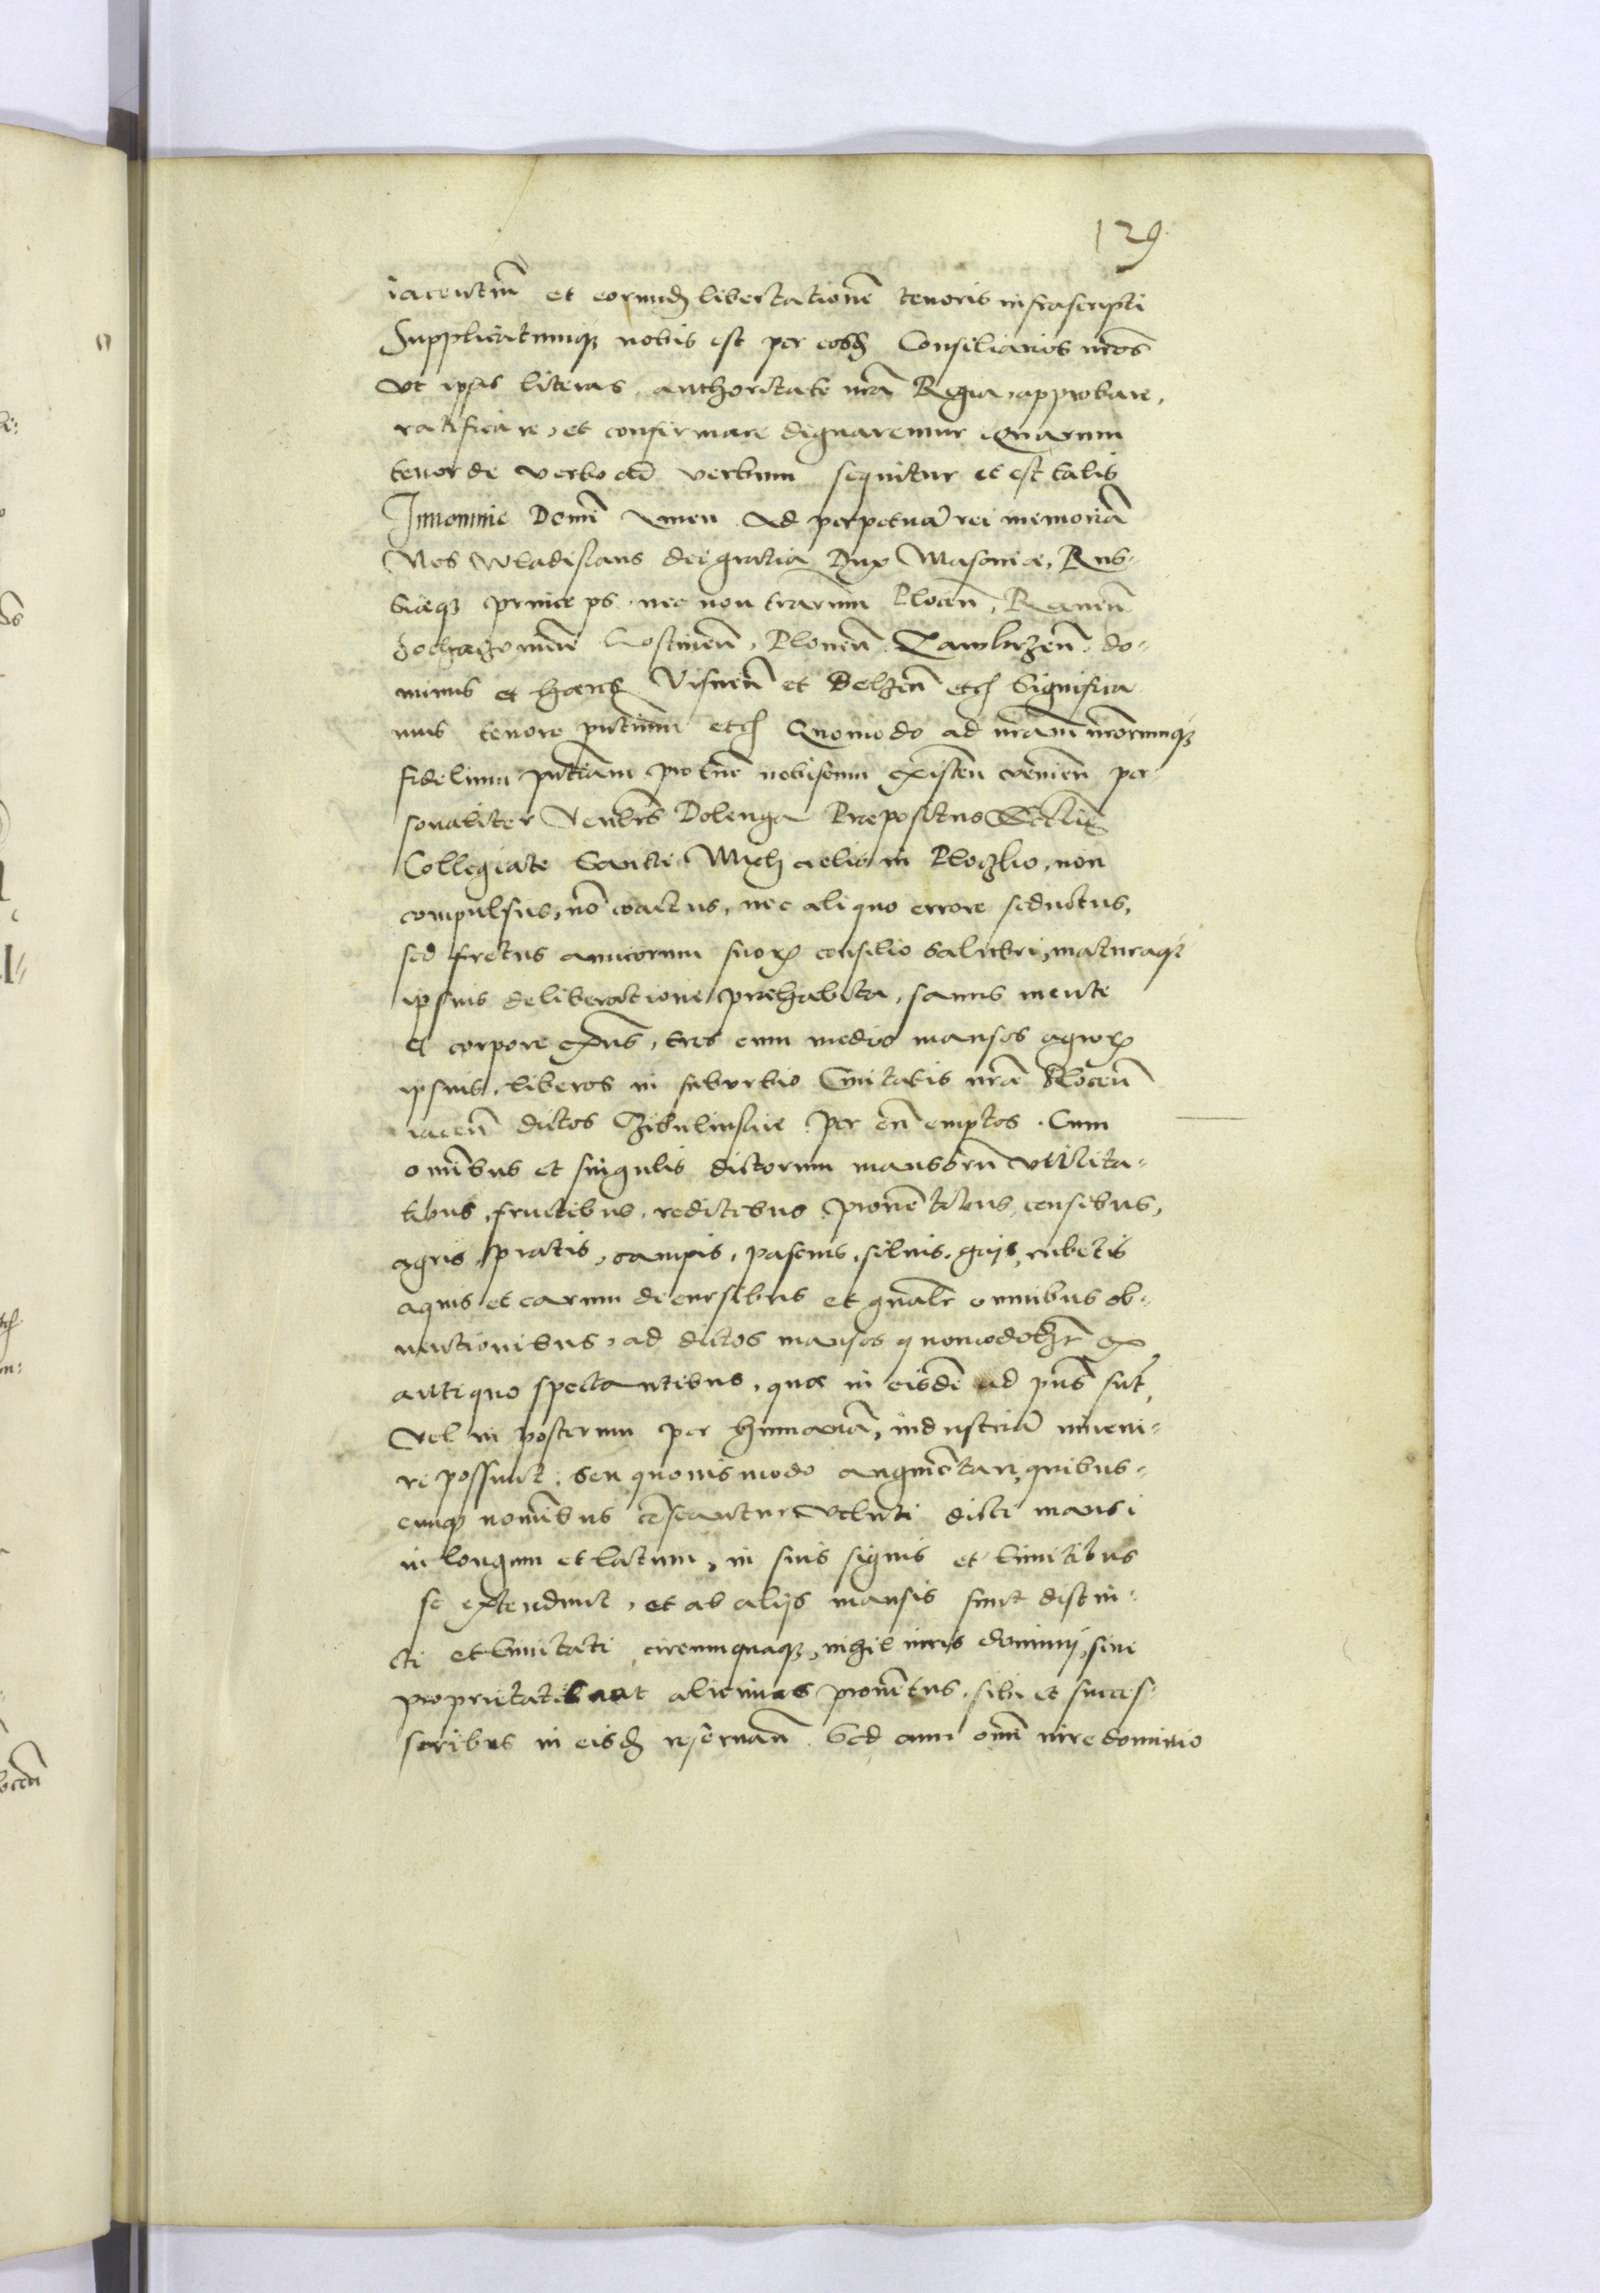 129
iacentiũ et eorundẽ libertationẽ tenoris infrascripti
Supplicatumq nobis est per eosd Consiliarios nr̃os
vt ipsas literas, authoritate nr̃a Regia, approbare,
ratificare, et confirmare dignaremur Quarum
tenor de verbo ad verbum sequitur et est talis
In nomine Domĩ Amen Ad perpetuã rei memoriã
Nos Wladislaus dei gratia Dux Masouiæ, Rus-
siæq princeps nec non terrarum Plocen̄, Rauen̄
Sochaczouien̄ Gostinen̄, Plonen̄ Zawkrzen̄, do-
minus et hæres Visnen̄ et Belzen̄ etc Significa
mus tenore pn̄tium etc Quomodo ad nr̃am nr̃orumq
fidelium pn̄tiam protunc nobiscum existen̄ venien̄ per
sonaliter Venlis Dolenga Præpositus Eccl̃iæ
Collegiate Sancti Michaelis in Ploczko, non
compulsus, nõ coactus, nec aliquo errore seductus,
sed fretus amicorum suorꝝ consilio salubri, maturaq
ipsius deliberatione præhabita, sanus mente
et corpore exn̄s, tres cum medio mansos agrorꝝ
ipsius, liberos in suburbio Ciuitatis nr̃æ Plocen̄
iacen̄ dictos Zibulinskie per eũ emptos. Cum
omĩbus et singulis dictorum mansorũ vtilita-
tibus, fructibus, reditibus prouẽtibus, censibus,
agris, pratis, campis, pascuis, siluis, gaijs, rubetis
aquis et earum decursibus et gn̄alr̃ omnibus ob-
uentionibus, ad dictos mansos quomodolz̃ ex
antiquo spectantibus, quæ in eisdẽ ad pn̄s sut̃,
Vel in posterum per humanã, industriã inueni-
ri possunt, seu quouismodo augmẽtari, quibus-
cunq nomĩbus cẽseantur Veluti dicti mansi
in longum et latum, in suis signis et limitibus
se extendunt, et ab alijs mansis sunt distin-
cti et limitati circumquaq, nihil iuris dominij, siue
proprietatis aut alicuius prouẽtus, sibi et succes-
soribus in eisd reseruan̄ Sed cum omĩ iure dominio